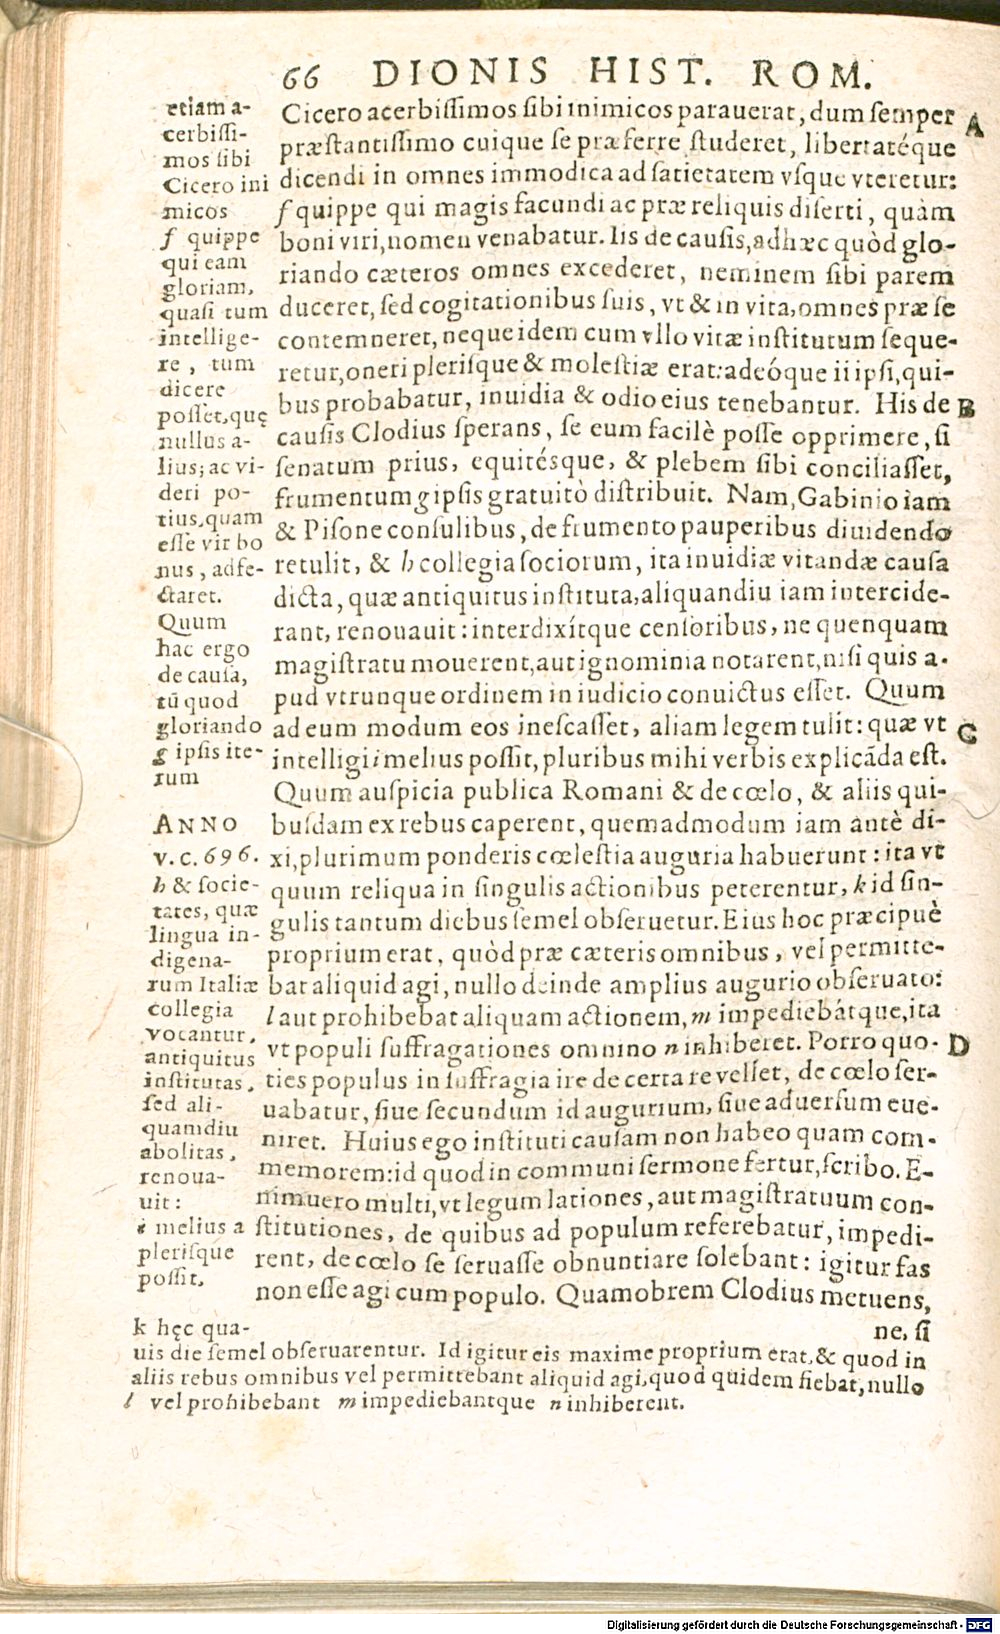 66 DIONIS HIST. ROM.
etiam a-
cerbiſſi-
mos ſibi
Cicero ini
micos
f quippe
qui eam
gloriam,
quaſi tum
intellige-
re, tum
dicere
poſſet, quę
nullus a-
lius; ac vi-
deri po-
tius, quam
eſſe vir bo
nus, adfe-
ctaret.
Quum
hac ergo
de cauſa,
tū quod
gloriando
g ipſis ite-
rum
ANNO
V. C. 696.
h & ſocie-
tates, quæ
lingua in-
digena-
rum Italiæ
collegia
vocantur,
antiquitus
inſtitutas,
ſed ali-
quamdiu
abolitas,
renoua-
uit:
i melius a
pleriſque
poſſit,
Cicero acerbiſſimos ſibi inimicos parauerat, dum ſemper A
præſtantiſſimo cuique ſe præferre ſtuderet, libertatéque
dicendi in omnes immodica ad ſatietatem vſque vteretur:
f quippe qui magis facundi ac præ reliquis diſerti, quàm
boni viri, nomen venabatur. Iis de cauſis, adhæc quòd glo-
riando cæteros omnes excederet, neminem ſibi parem
duceret, ſed cogitationibus ſuis, vt & in vita, omnes præ ſe
contemneret, neque idem cum vllo vitæ inſtitutum ſeque-
retur, oneri pleriſque & moleſtiæ erat: adeóque ii ipſi, qui-
bus probabatur, inuidia & odio eius tenebantur. His de B
cauſis Clodius ſperans, ſe eum facilè poſſe opprimere, ſi
ſenatum prius, equitéſque, & plebem ſibi conciliaſſet,
frumentum g ipſis gratuitò diſtribuit. Nam, Gabinio iam
& Piſone conſulibus, de frumento pauperibus diuidendo
retulit, & h collegia ſociorum, ita inuidiæ vitandæ cauſa
dicta, quæ antiquitus inſtituta, aliquandiu iam intercide-
rant, renouauit: interdixítque cenſoribus, ne quenquam
magiſtratu mouerent, aut ignominia notarent, niſi quis a-
pud vtrunque ordinem in iudicio conuictus eſſet. Quum
ad eum modum eos ineſcaſſet, aliam legem tulit: quæ vt C
intelligi i melius poſſit, pluribus mihi verbis explicāda eſt.
Quum auſpicia publica Romani & de cœlo, & aliis qui-
buſdam ex rebus caperent, quemadmodum iam antè di-
xi, plurimum ponderis cœleſtia auguria habuerunt: ita vt
quum reliqua in ſingulis actionibus peterentur, k id ſin-
gulis tantum diebus ſemel obſeruetur. Eius hoc præcipuè
proprium erat, quòd præ cæteris omnibus, vel permitte-
bat aliquid agi, nullo deinde amplius augurio obſeruato:
l aut prohibebat aliquam actionem, m impediebátque, ita
vt populi ſuffragationes omnino n inhiberet. Porro quo- D
ties populus in ſuffragia ire de certa re velſet, de cœlo ſer-
uabatur, ſiue ſecundum id augurium, ſiue aduerſum eue-
niret. Huius ego inſtituti cauſam non habeo quam com-
memorem: id quod in communi ſermone fertur, ſcribo. E-
nimuero multi, vt legum lationes, aut magiſtratuum con-
ſtitutiones, de quibus ad populum referebatur, impedi-
rent, de cœlo ſe ſeruaſſe obnuntiare ſolebant: igitur fas
non eſſe agi cum populo. Quamobrem Clodius metuens,
ne, ſi
k hęc qua-
uis die ſemel obſeruarentur. Id igitur eis maxime proprium erat, & quod in
aliis rebus omnibus vel permittebant aliquid agi, quod quidem fiebat, nullo
l vel prohibebant m impediebantque n inhiberent.
Digitalisierung gefördert durch die Deutsche Forschungsgemeinschaft - DFG